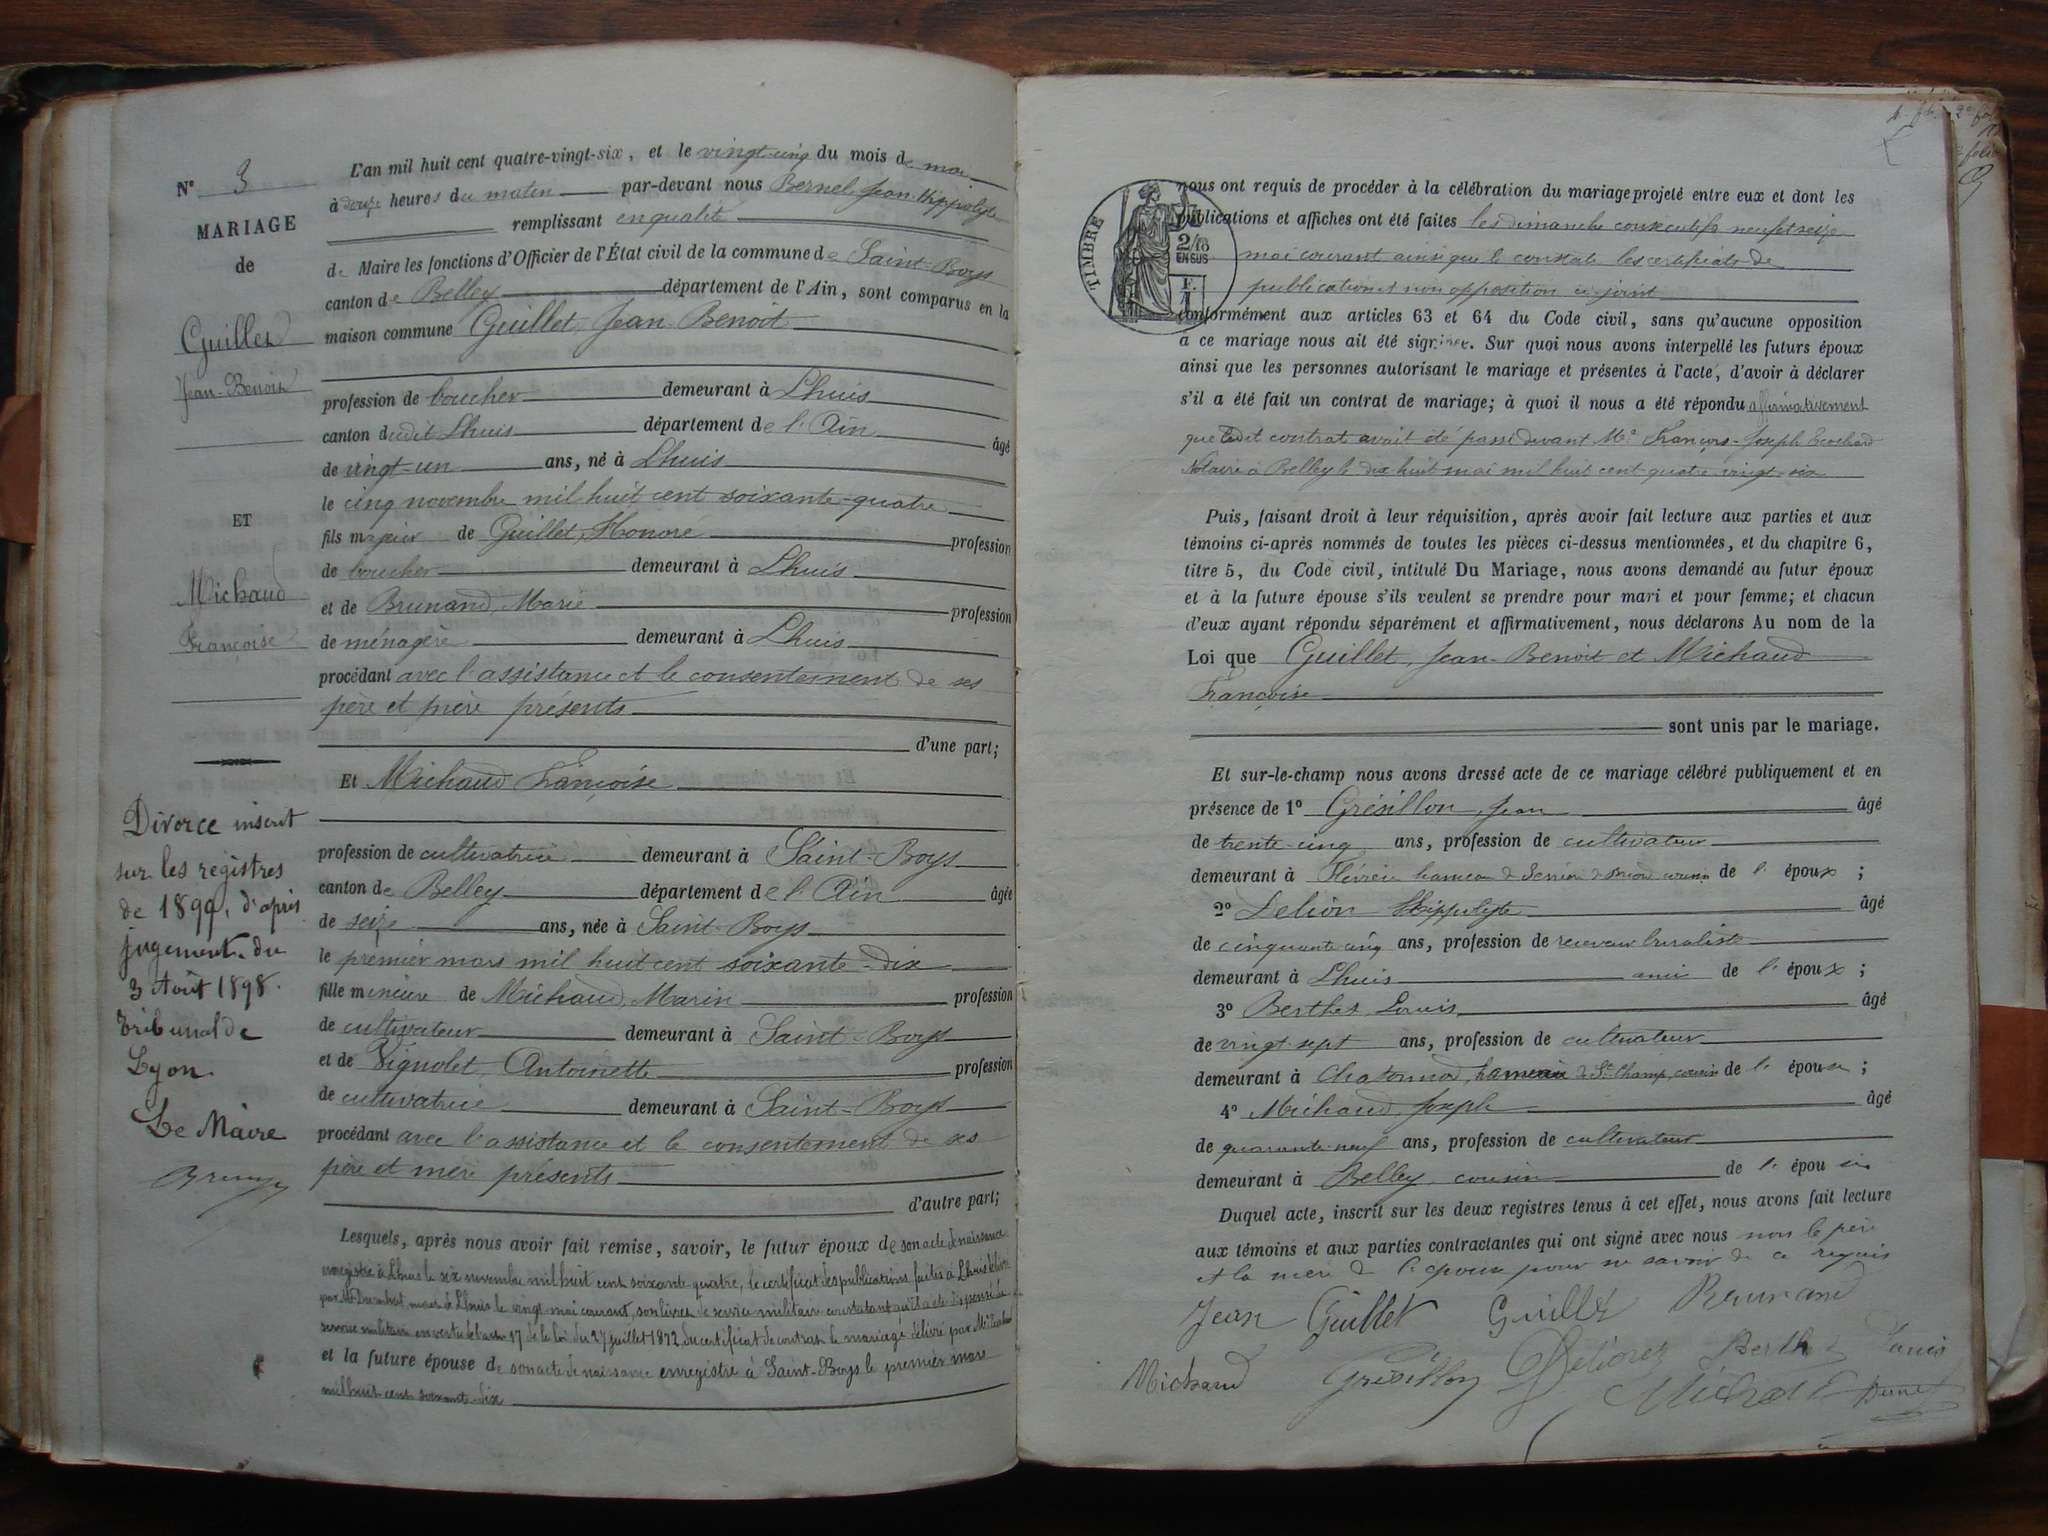 N° 3
MARIAGE
de
Guillet
Jean-Benoit
ET
Michaud
Françoise
Divorce inscrit
sur les registres
de 1899, d'après
jugement du
3 Août 1898.
Tribunal de
Lyon.
Le Maire
L'an mil huit cent quatre-vingt-six, et le vingt-cinq du mois de mai
à douze heures du matin par-devant nous Bernel, Jean Hippolyte
remplissant en qualité
de Maire les fonctions d'Officier de l'État civil de la commune de Saint-Boys
canton de Belley département de l'Ain, sont comparus en la
maison commune Guillet, Jean Benoit
profession de boucher demeurant à Lhuis
canton dudit Lhuis département de l'Ain âgé
de vingt-un ans, né à Lhuis
le cinq novembre mil huit cent soixante-quatre
fils majeur de Guillet, Honoré profession
de boucher demeurant à Lhuis
et de Brunand, Marie profession
de ménagère demeurant à Lhuis
procédant avec l'assistance et le consentement de ses
père et mère présents
d'une part;
Et Michaud Françoise
profession de cultivatrice demeurant à Saint-Boys
canton de Belley département de l'Ain âgée
de seize ans, née à Saint-Boys
le premier mars mil huit cent soixante-dix
fille mineure de Michaud, Marin profession
de cultivateur demeurant à Saint-Boys
et de Vignolet, Antoinette profession
de cultivatrice demeurant à Saint-Boys
procédant avec l'assistance et le consentement de ses
père et mère présents
d'autre part;
Lesquels, après nous avoir fait remise, savoir, le futur époux de son acte de naissance
enregistré à Lhuis le six novembre mil huit cent soixante quatre, le certificat des publications faites à Lhuis délivré
par Mr maire de Lhuis le vingt mai courant, son livret de service militaire constatant qu'il a été dispensé du
service militaire en vertu de l'article 17 de la loi du 27 juillet 1872, du certificat de contrat de mariage délivré par Me
et la future épouse de son acte de naissance enregistré à Saint-Boys le premier mars
mil huit cent soixante-dix
TIMBRE
2/10
EN SUS
F.
1
nous ont requis de procéder à la célébration du mariage projeté entre eux et dont les
publications et affiches ont été faites les dimanche consécutifs neuf et seize
mai courant ainsi que le constate les certificats de
publication et non opposition ci-joint
conformément aux articles 63 et 64 du Code civil, sans qu'aucune opposition
à ce mariage nous ait été signifiée. Sur quoi nous avons interpellé les futurs époux
ainsi que les personnes autorisant le mariage et présentes à l'acte, d'avoir à déclarer
s'il a été fait un contrat de mariage; à quoi il nous a été répondu affirmativement
que ledit contrat avait été passé devant Me François-Joseph
Notaire à Belley le dix huit mai mil huit cent quatre vingt-six
Puis, faisant droit à leur réquisition, après avoir fait lecture aux parties et aux
témoins ci-après nommés de toutes les pièces ci-dessus mentionnées, et du chapitre 6,
titre 5, du Code civil, intitulé Du Mariage, nous avons demandé au futur époux
et à la future épouse s'ils veulent se prendre pour mari et pour femme; et chacun
d'eux ayant répondu séparément et affirmativement, nous déclarons Au nom de la
Loi que Guillet, Jean-Benoit et Michaud
Françoise
sont unis par le mariage.
Et sur-le-champ nous avons dressé acte de ce mariage célébré publiquement et en
présence de 1° Grésillon, Jean âgé
de trente-cinq ans, profession de cultivateur
demeurant à hameau de cousin de l'époux;
2° Hippolyte âgé
de cinquante cinq ans, profession de receveur buraliste
demeurant à Lhuis ami de l'époux;
3° Berthet Louis âgé
de vingt-sept ans, profession de cultivateur
demeurant à Chatonnod, hameau de St Champ, cousin de l'épouse;
4° Michaud, Joseph âgé
de quarante-neuf ans, profession de cultivateur
demeurant à Belley, cousin de l'épouse
Duquel acte, inscrit sur les deux registres tenus à cet effet, nous avons fait lecture
aux témoins et aux parties contractantes qui ont signé avec nous non le père
et la mère de l'épouse pour ne savoir de ce requis
Jean Guillet Guillet Brunand
Michaud Grésillon Berthet Louis